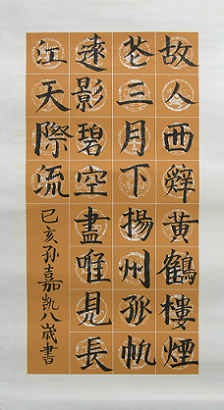 故人西辤黄鶴樓煙
花三月下揚州孤帆
遠影碧空盡唯見長
江天際流
己亥孙嘉凯八歲書